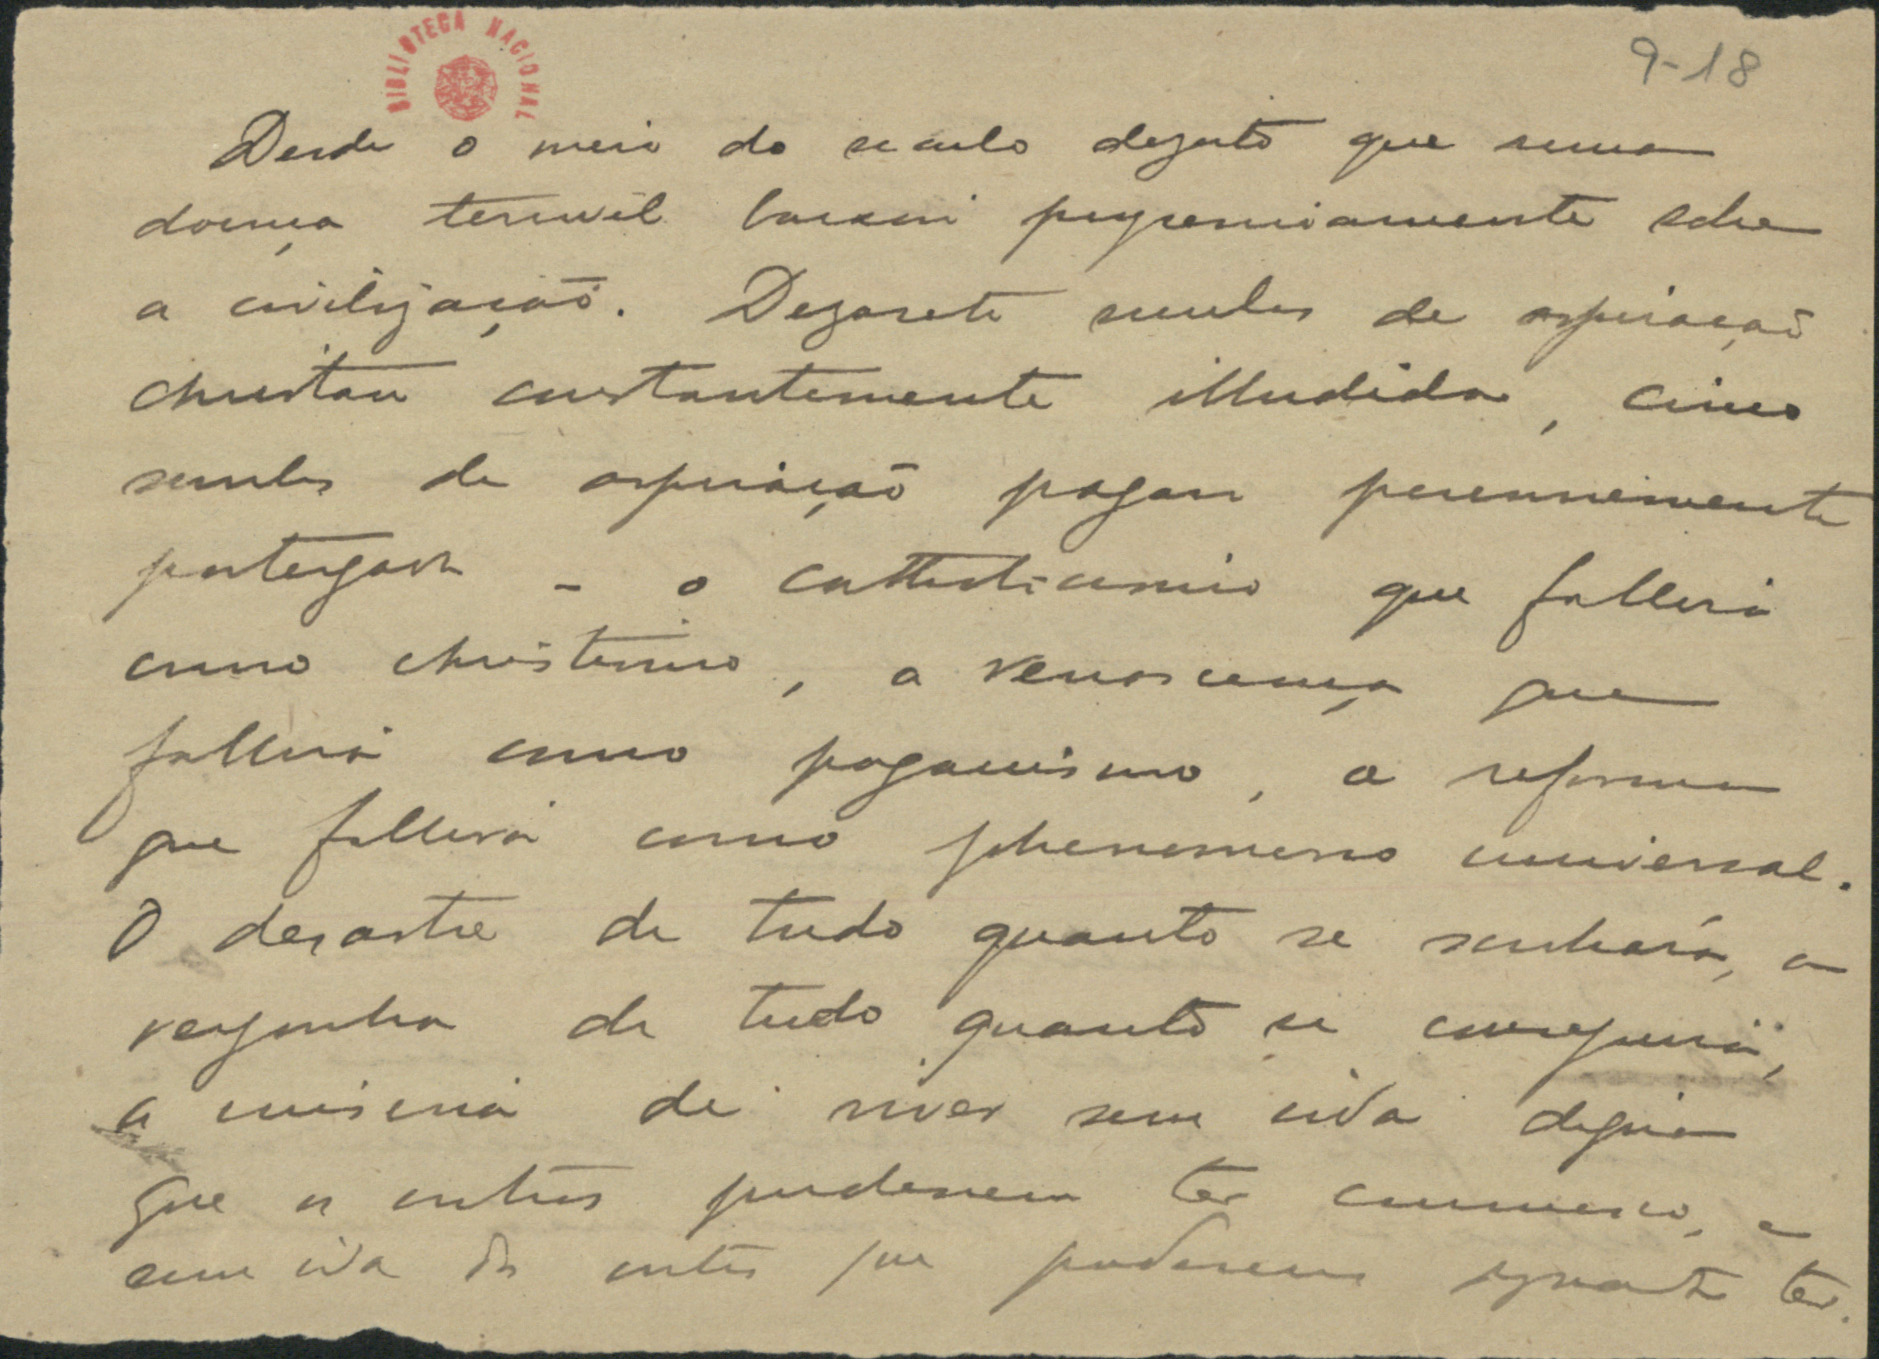 BIBLIOTECA NACIONAL
9-18
Desde o meio do seculo dezoito que uma
doença terrivel baixou progressivamente sobre
a civilização. Dezasete seculos de aspiração
christan constantemente illudida, cinco
seculos de aspiração pagan perennemente
postergada - o catholicismo que fallira
como christismo, a renascença que
fallira como paganismo, a reforma
que fallira como phenomeno universal.
O desastre de tudo quanto se sonhara, a
vergonha de tudo quanto se conseguira,
a miseria de viver sem vida digna
que os outros pudessem ter comnosco, e
sem vida dos outros que pudessemos dignamente ter.